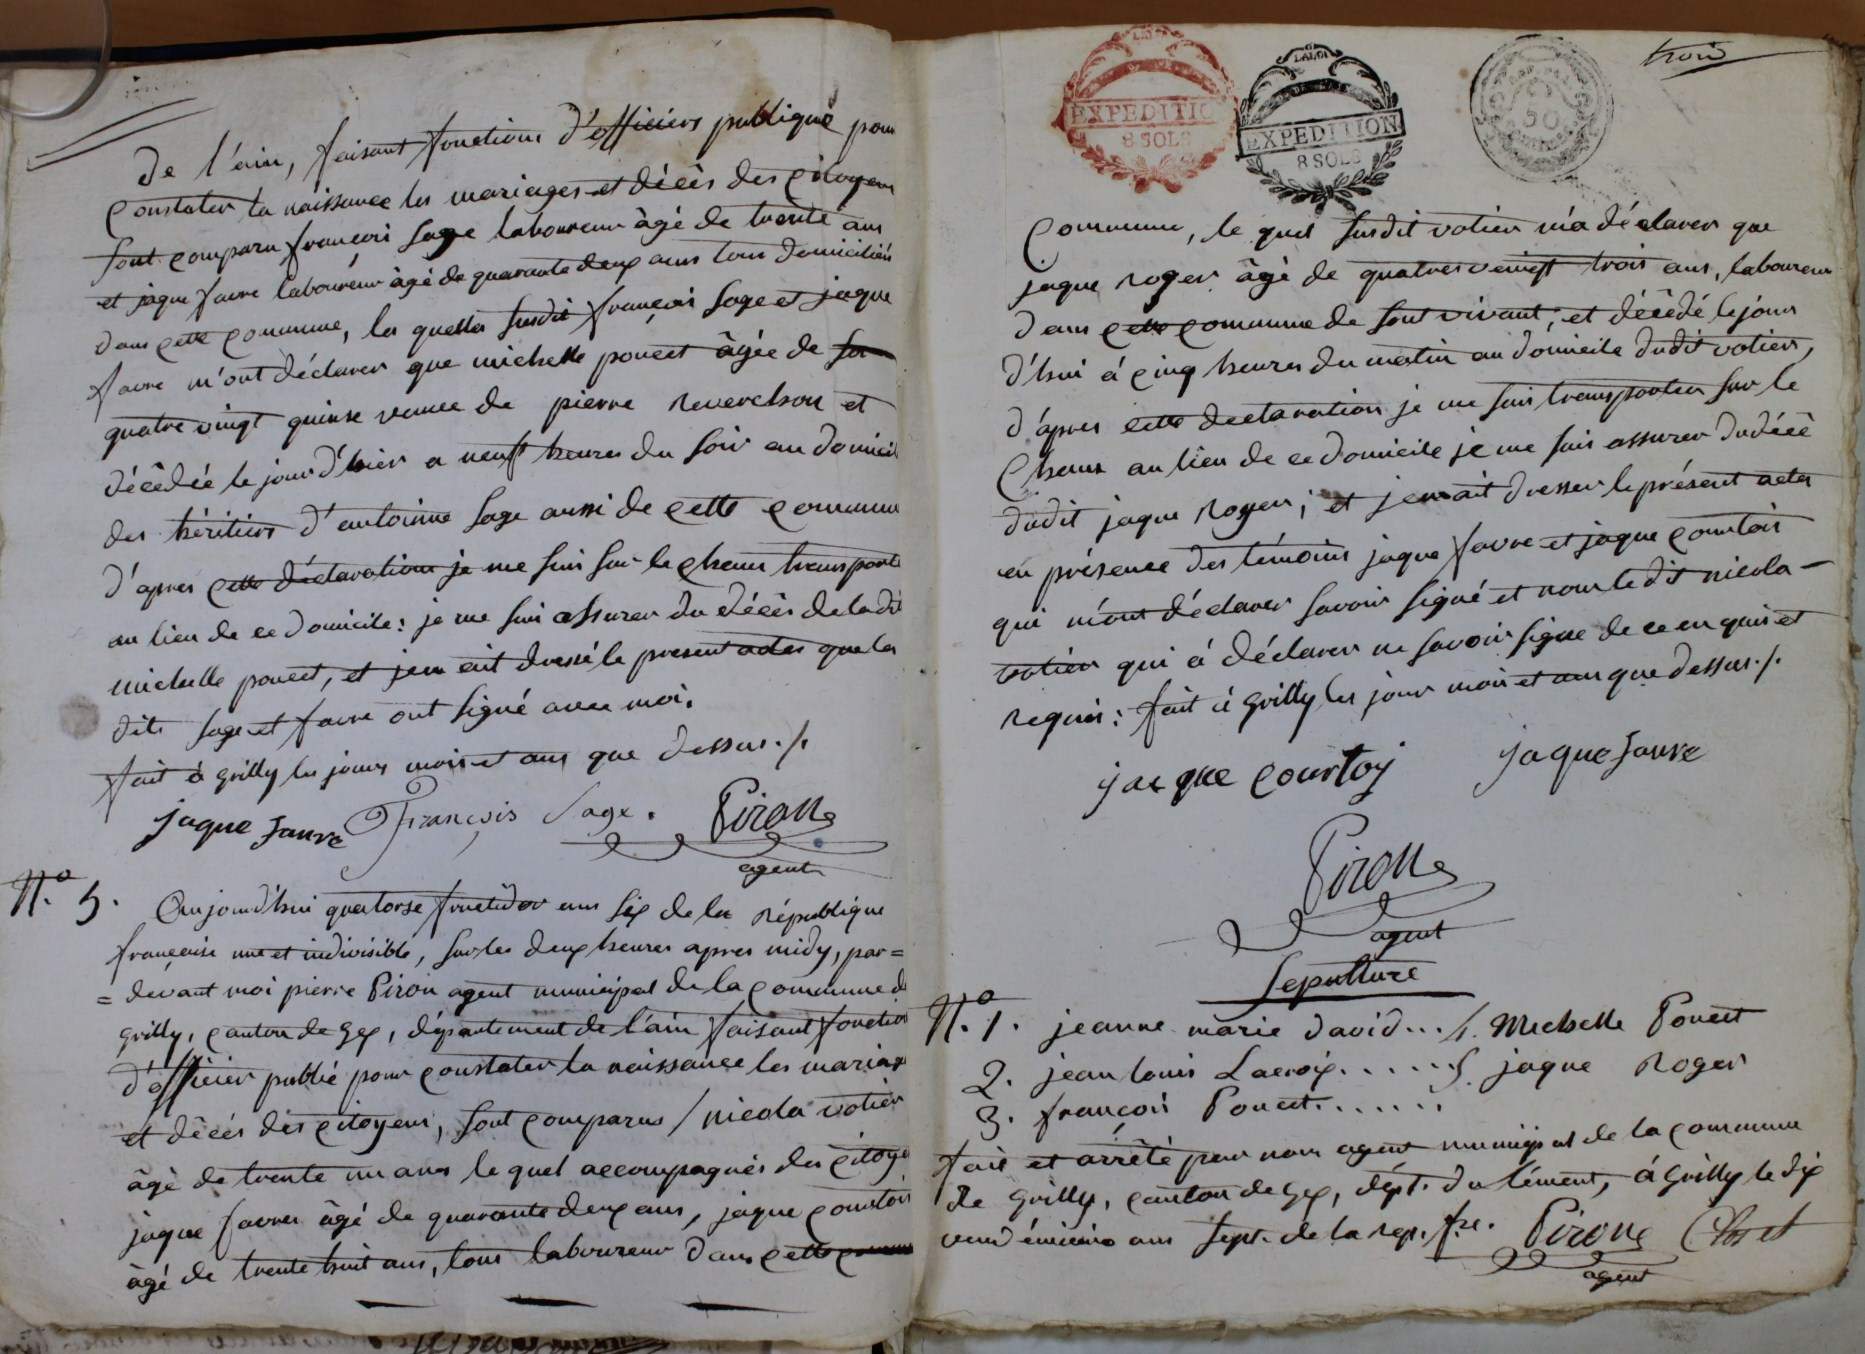 de l'ain, faisant fonctions d'officiers publique pour
constater la naissance les mariages et décès des citoyens
sont comparu françois sage laboureur àgé de trente ans
et jaque favre laboureur àgé de quarante deux ans tous domiciliés
dans cette commune, les quelles susdit françois sage et jaque
favre m'ont déclarer que michelle poncet àgée de
quatre vingt quinse veuve de pierre reverchon et
décédée le jour d'hier a neuf heures du soir au domicil
des héritiers d'antoinne sage aussi de cette commune
d'apres cette déclaration je me suis sur le cham transporté
au lieu de ce domicile: je me suis assurer du décès de la dit
michelle poncet, et j'en ait dressé le present actes que les
dits sage et favre ont signé avec moi.
fait à grilly les jours mois et ans que dessus ./.
jaque favre François Sage. Piron
agent
N.o 5. Aujourd'hui quatorse fructidor ans six de la république
françaisse une et indivisible, sur les deux heures apres midy, par=
=devant moi pierre Piron agent municipal de la commune de
grilly, canton de gex, département de l'ain faisant fonction
d'officier public pour constater la naissance les mariage
et décès des citoyens, sont comparus / nicola votier
àgé de trente un ans le quel accompagnés des citoye
jaque favres àgé de quarante deux ans, jaque courtois
àgé de trente huit ans, tous laboureur dans cette commune
trois
LA LOI
EXPEDITION
8 SOLS
LA LOI
EXPEDITION
8 SOLS
50
commune, le quel susdit votier m'a déclarer que
jaque roger àgé de quatres veingt trois ans, laboureur
dans cette commune de sont vivant; et décédé le jour
d'hui à cinq heures du matin au domicile dudit votier,
d'apres cette declaration je me suis transporter sur le
Cham au lieu de ce domicile je me suis assurer du décè
dudit jaque Roger; et j'en ait dresser le présent actes
en présence des témoins jaque favre et jaque courtois
qui m'ont déclarer savoir signé et non le dit nicola
votier qui à déclarer ne savoir signe de ce enquis et
requis: fait à grilly les jour mois et ans que dessus ./.
jacque courtoy jaque favre
Piron
agent
Sepulture
N.o 1. jeanne marie david... 4. Michelle Poncet
2. jean louis Lacroix...... 5. jaque Roger
3. françois Poncet.......
fait et arrêté par nous agent municipal de la commune
de grilly, canton de gex, dépt. du lément, à grilly le dix
vendémiaire ans sept. de la rep. fse. Piron
agent